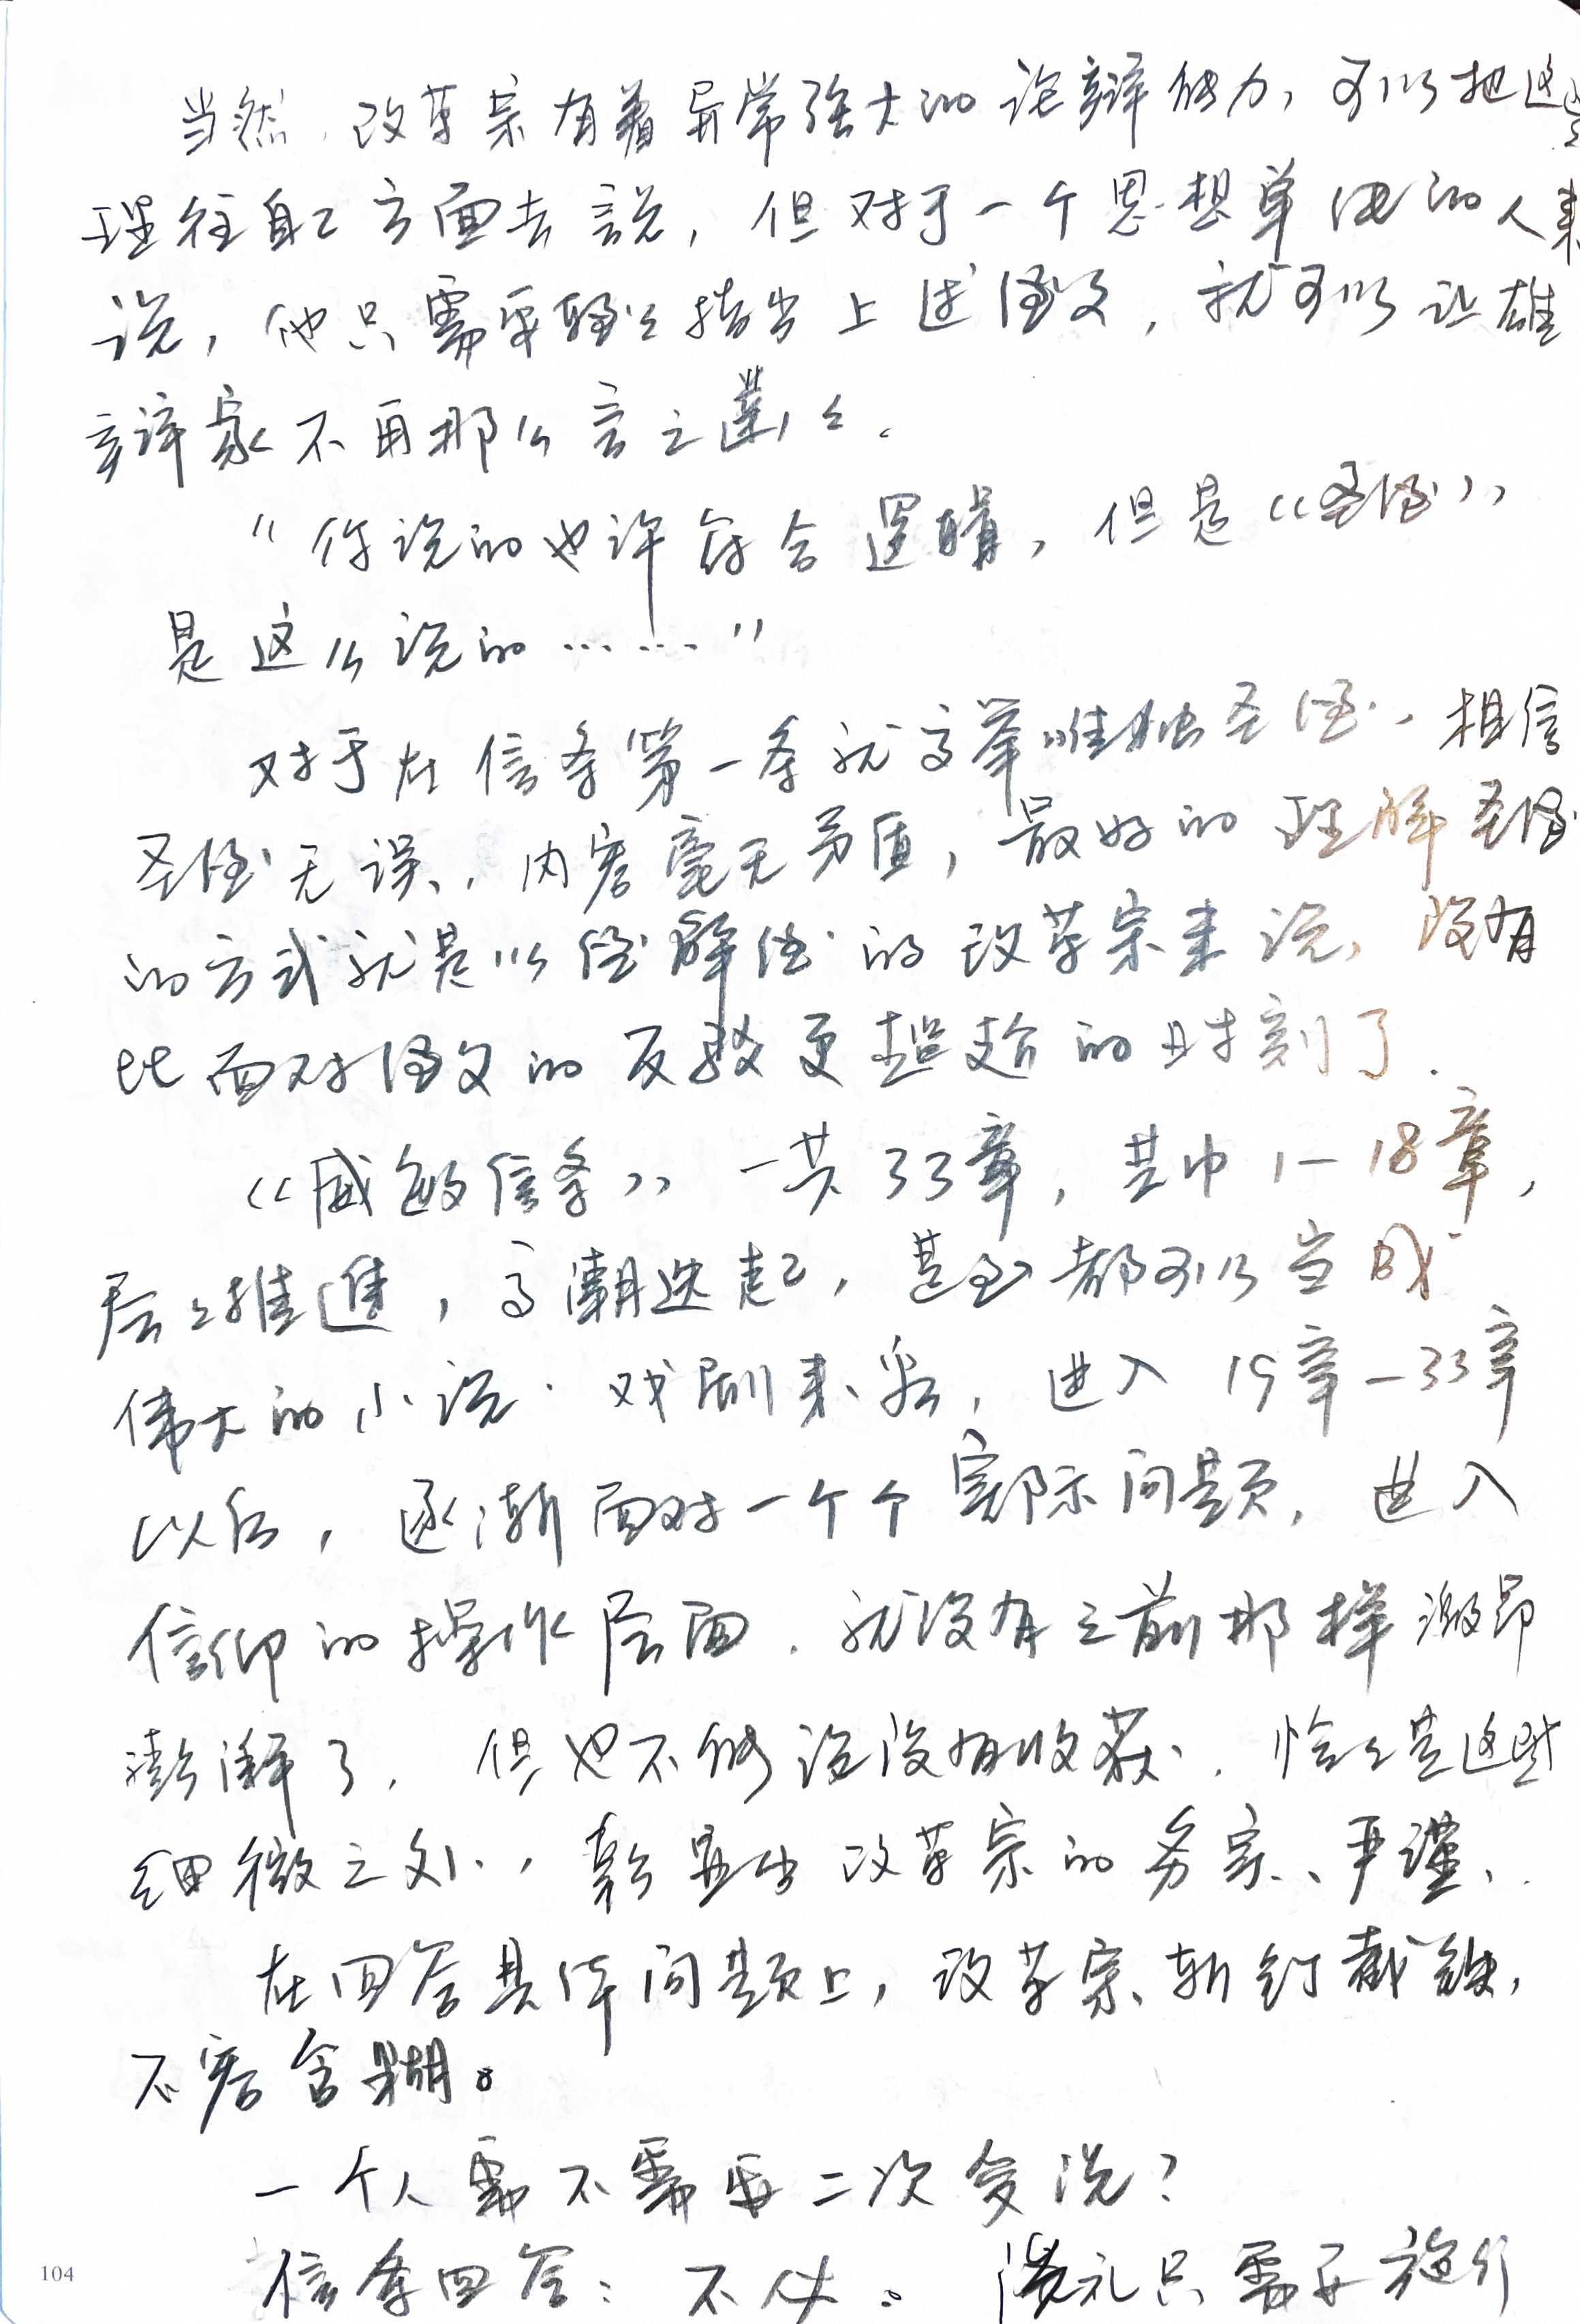 当然，改革宗有着异常强大的论辩能力，可以把这些
理往自己方面去说，但对于一个思想单纯的人来
说，他只需要轻轻指出上述经文，就可以让雄
辩家不再那么言之凿凿。
“你说的也许符合逻辑，但是《圣经》
是这么说的……”
对于在信条第一条就高举唯独圣经、相信
圣经无误、内容毫无矛盾，最好的理解圣经
的方式就是以经解经的改革宗来说，没有
比面对经文的反驳更尴尬的时刻了．
《威敏信条》一共33章，其中1—18章，
层层推进，高潮迭起，甚至都可以当成
伟大的小说、戏剧来看，进入19章—33章
以后，逐渐面对一个个实际问题，进入
信仰的操作层面．就没有之前那样激昂
澎湃了，但也不能说没有收获．恰恰是这些
细微之处，彰显出改革宗的务实、严谨．
在回答具体问题上，改革宗斩钉截铁，
不容含糊。
一个人需不需要二次受洗？
信条回答：不必。洗礼只需要施行
104